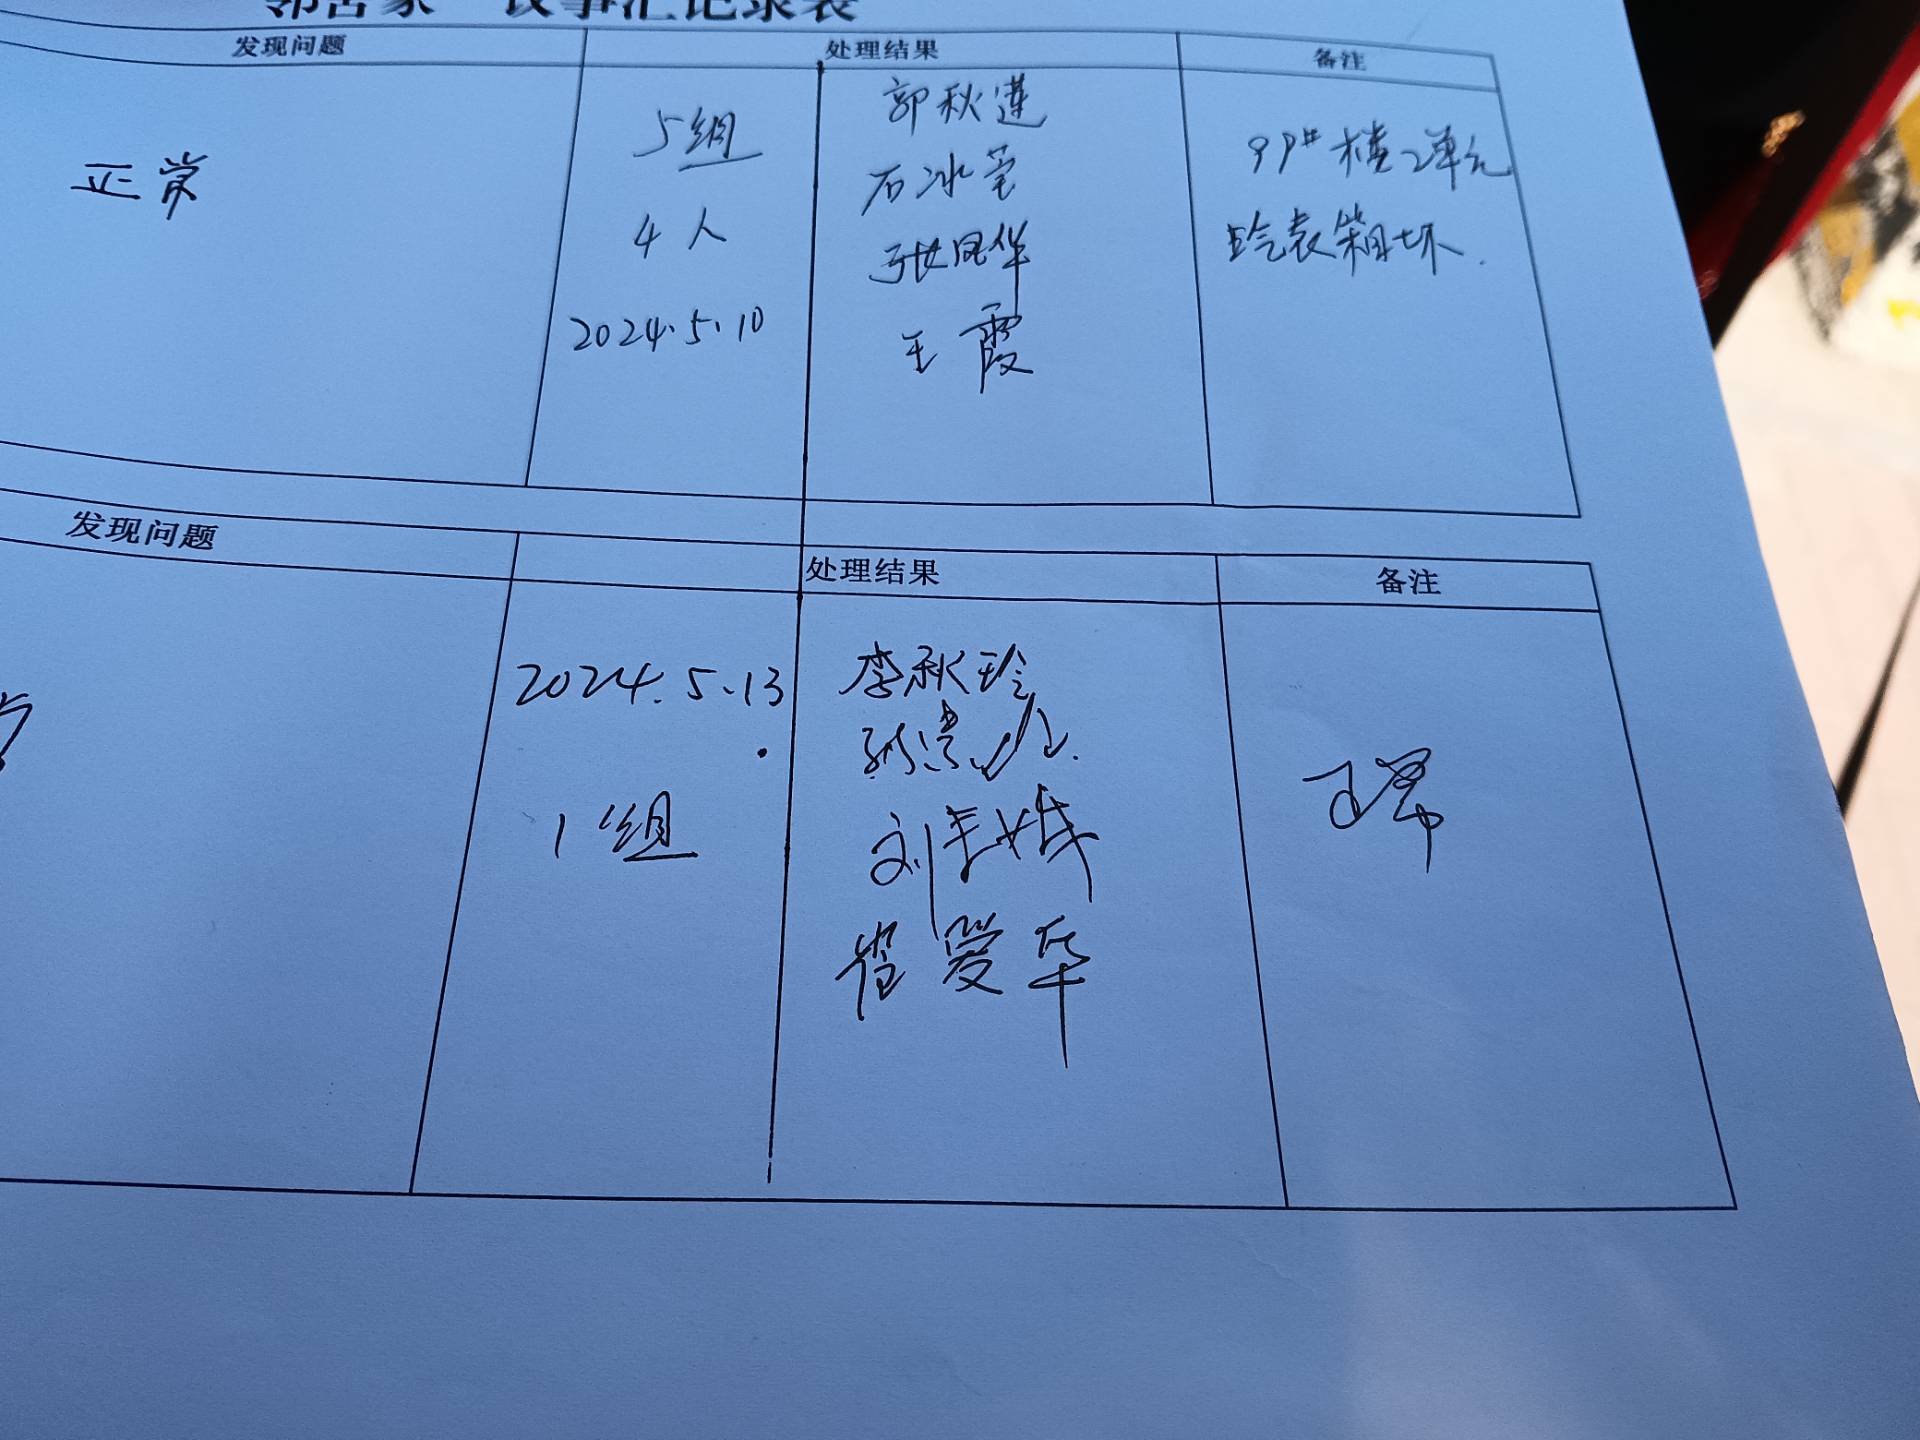 邻舍家 议事汇记录表
发现问题 处理结果 备注
正常
5组
4人
2024.5.10
郭秋莲
石冰莹
张凤华
王霞
99#楼2单元
电表箱坏.
发现问题 处理结果 备注
2024.5.13
1组
李秋玲
刘
崔爱华